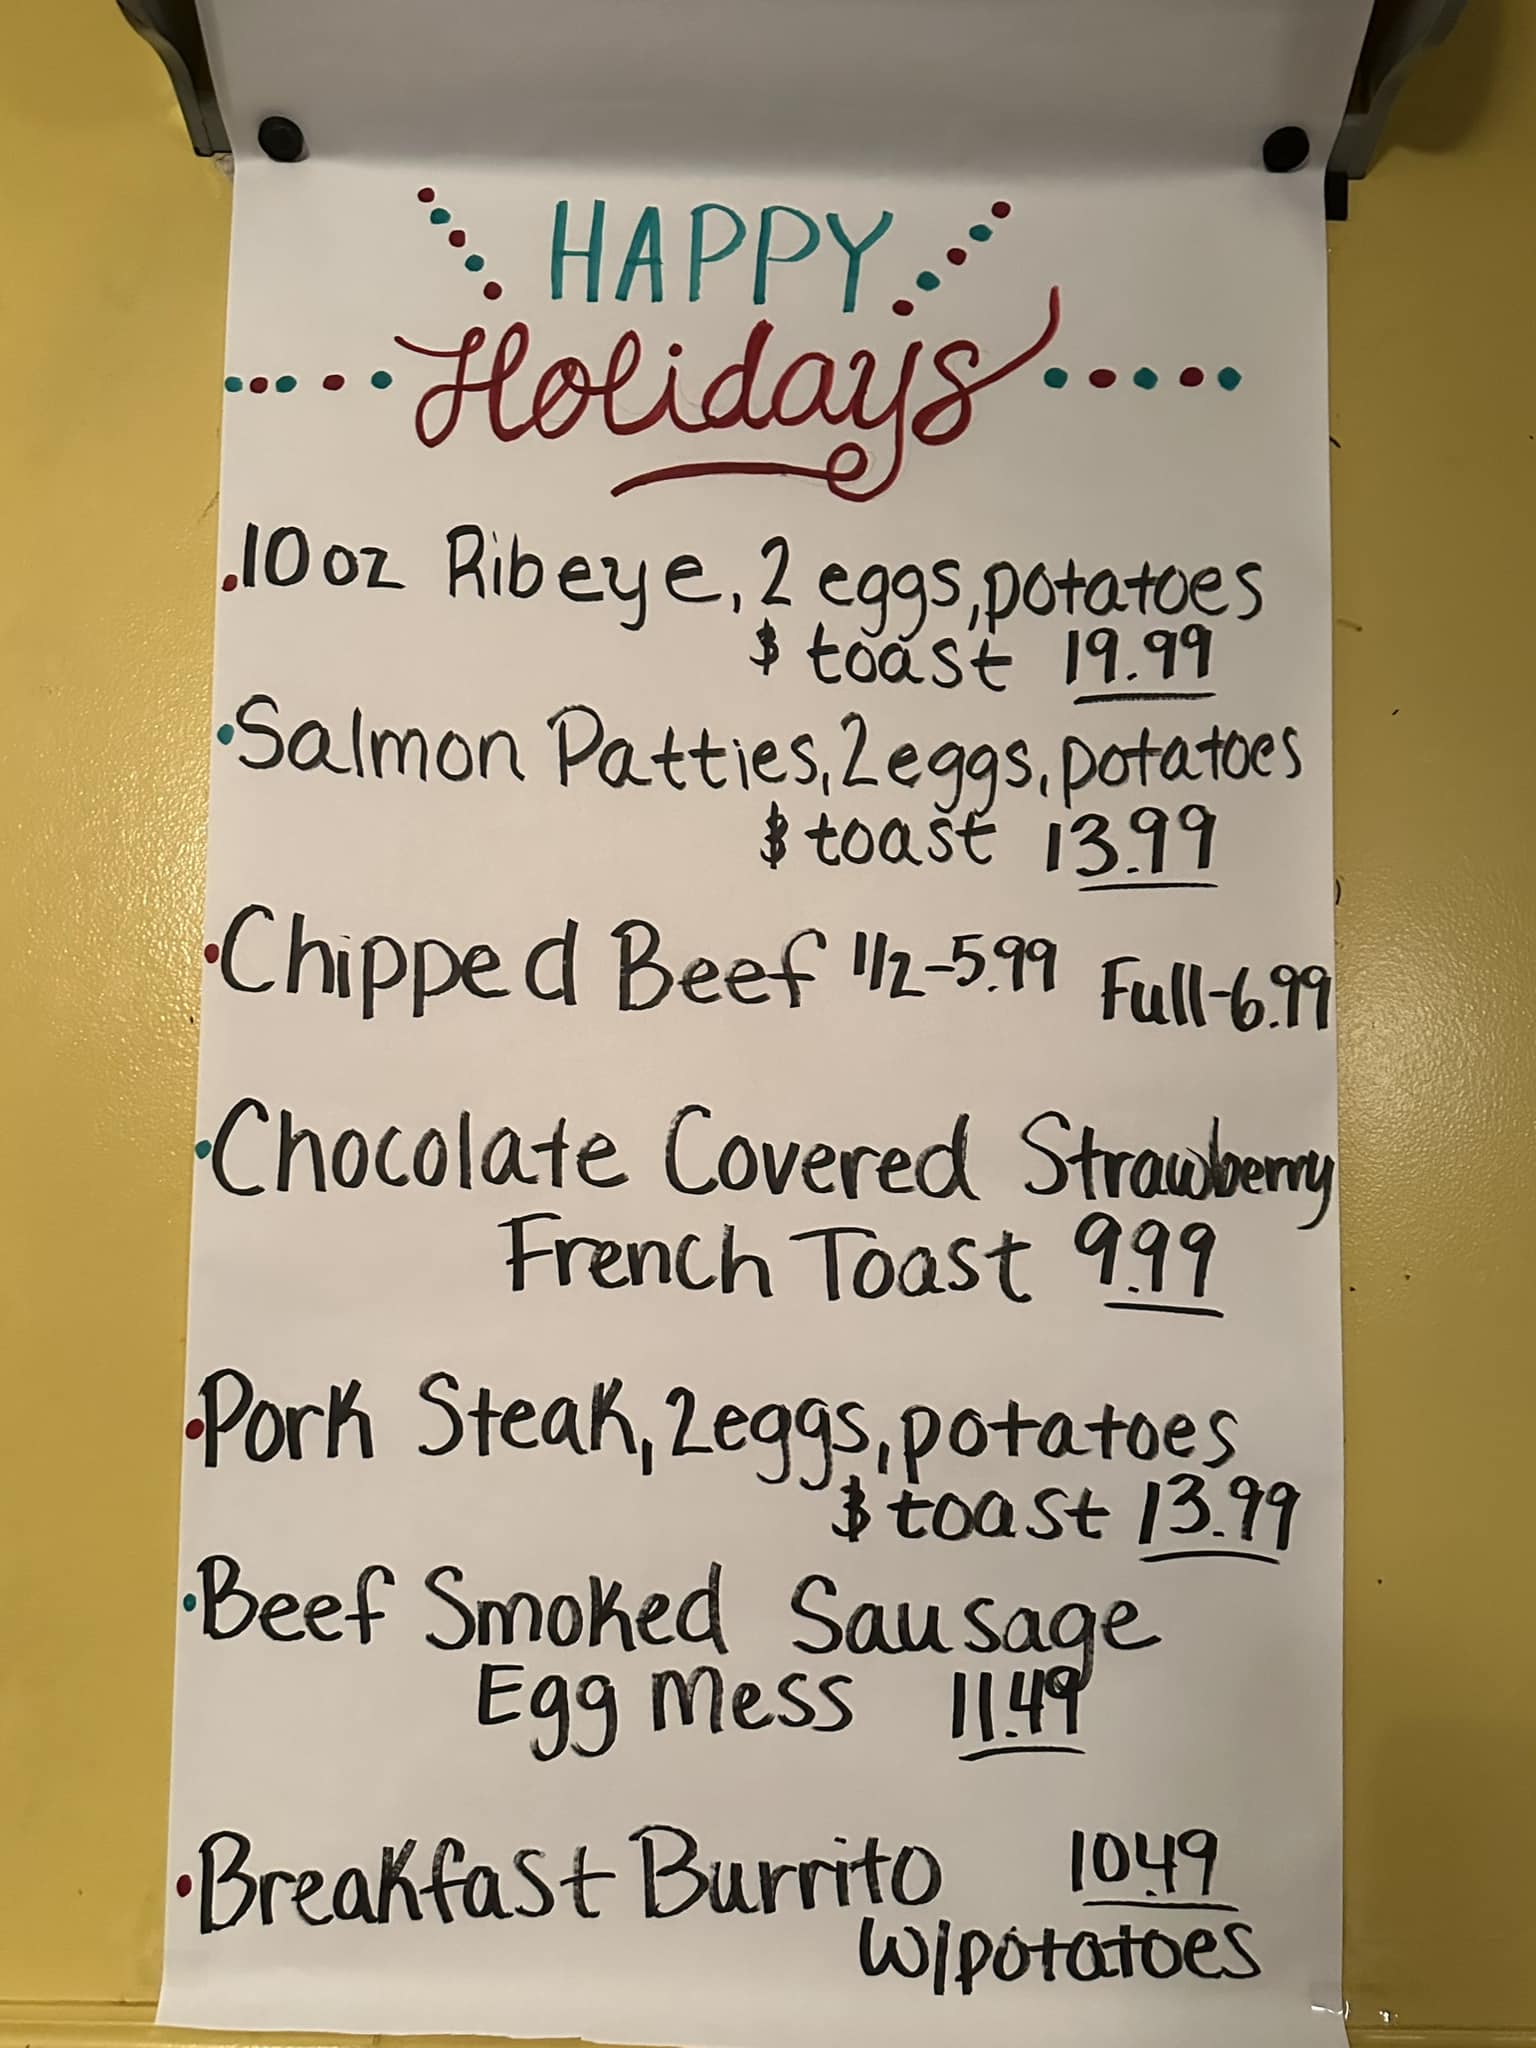 HAPPY
Holidays
.10oz Ribeye, 2 eggs, potatoes
$ toast 19.99
•Salmon Patties, 2 eggs, potatoes
$ toast 13.99
•Chipped Beef 1/2-5.99 Full-6.99
•Chocolate Covered Strawberry
French Toast 9.99
•Pork Steak, 2 eggs, potatoes
$ toast 13.99
•Beef Smoked Sausage
Egg Mess 11.49
•Breakfast Burrito 10.49
w/potatoes